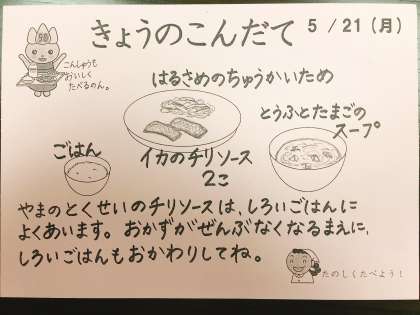 きょうのこんだて 5/21(月)
こんしゅうも
おいしく
たべるのん。
はるさめのちゅうかいため
とうふとたまごの
スープ
ごはん
イカのチリソース
2こ
やまのとくせいのチリソースは、しろいごはんに
よくあいます。おかずがぜんぶなくなるまえに、
しろいごはんもおかわりしてね。
たのしくたべよう!